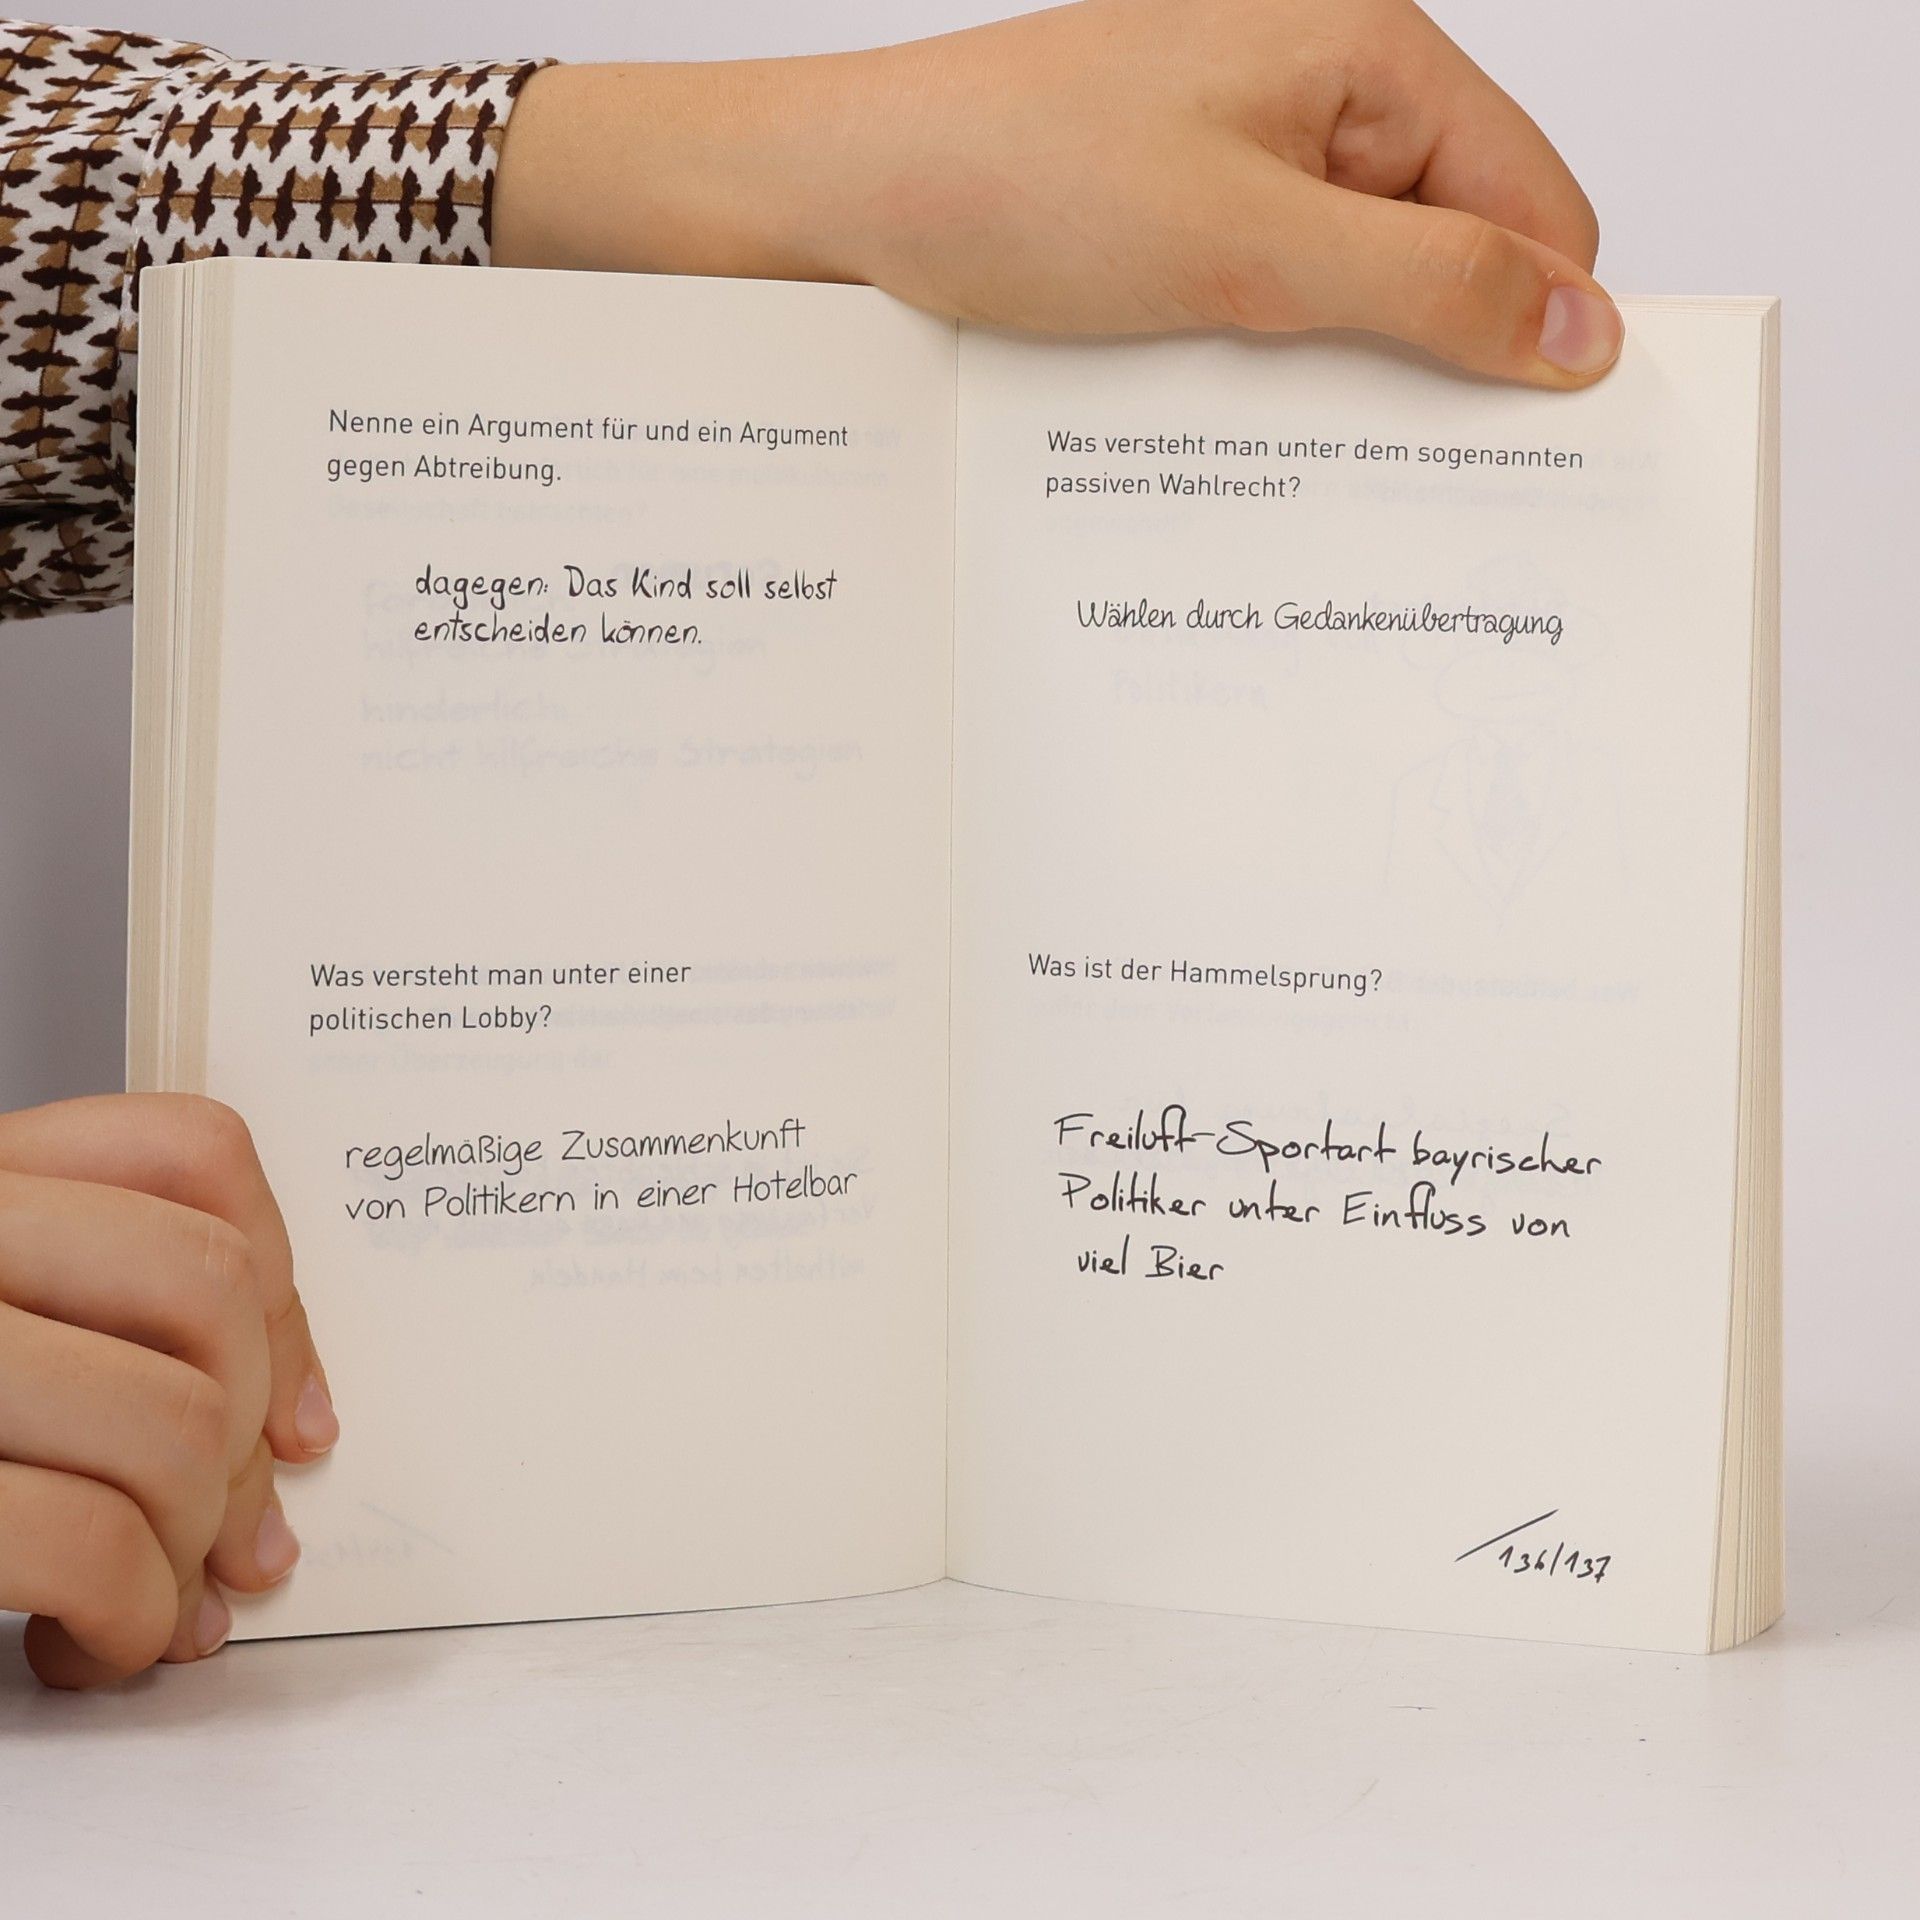 Nenne ein Argument für und ein Argument
gegen Abtreibung.
dagegen: Das Kind soll selbst
entscheiden können.
Was versteht man unter einer
politischen Lobby?
regelmäßige Zusammenkunft
von Politikern in einer Hotelbar
Was versteht man unter dem sogenannten
passiven Wahlrecht?
Wählen durch Gedankenübertragung
Was ist der Hammelsprung?
Freiluft-Sportart bayrischer
Politiker unter Einfluss von
viel Bier
136/137